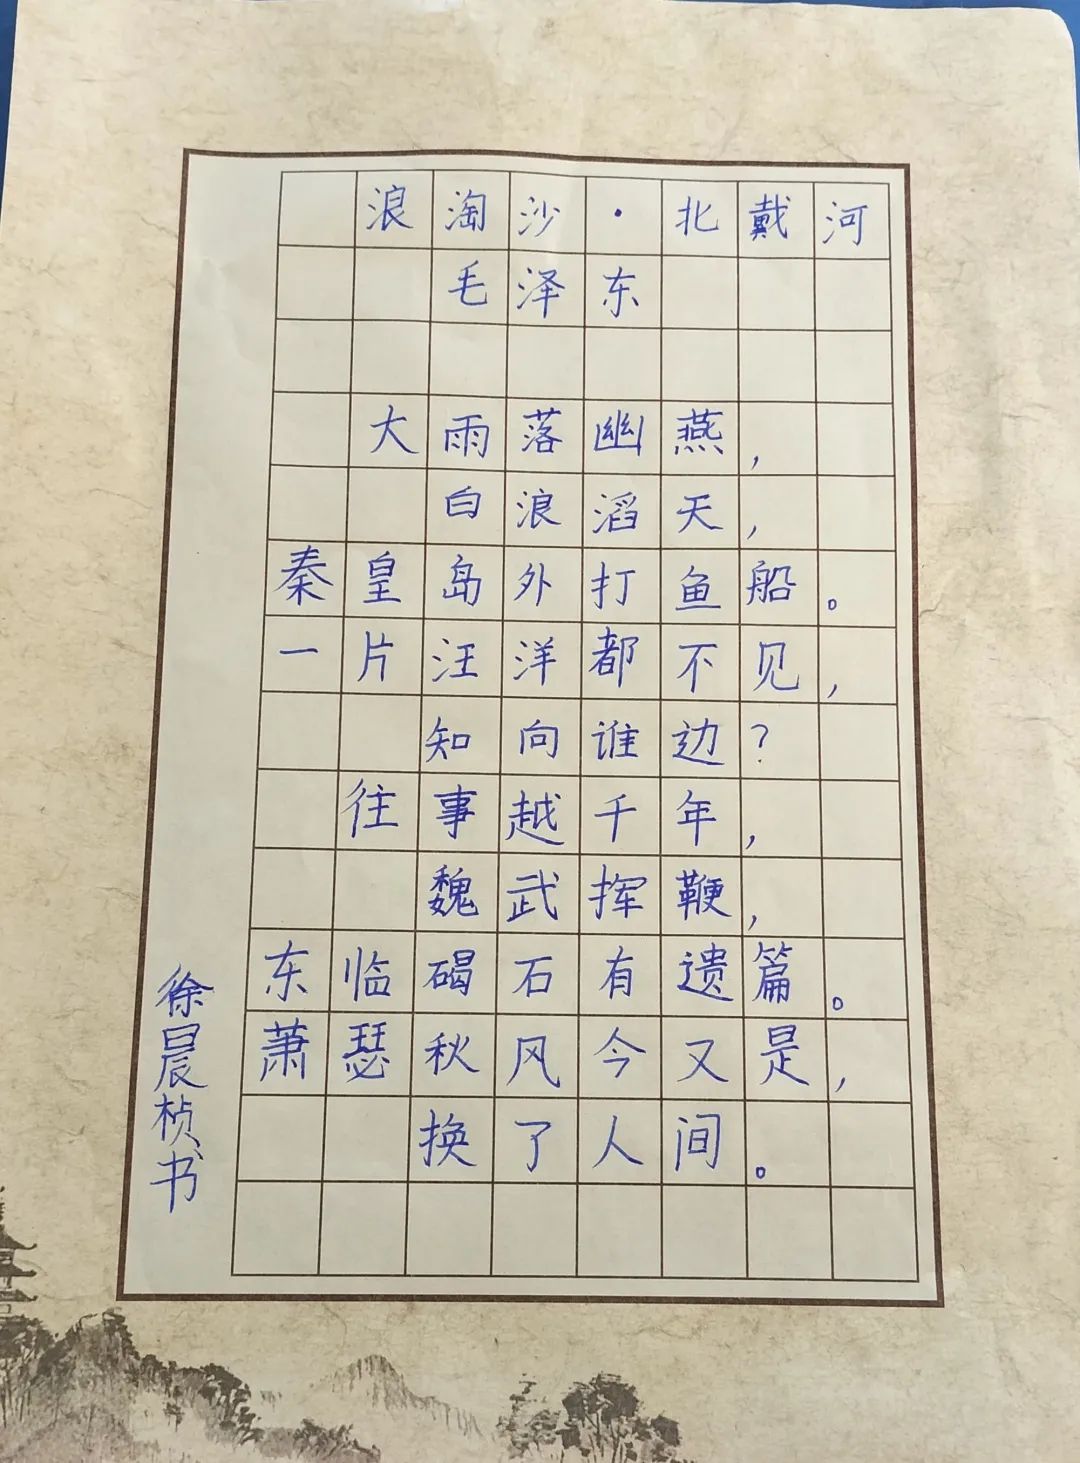 浪淘沙·北戴河
毛泽东
大雨落幽燕,
白浪滔天,
秦皇岛外打鱼船。
一片汪洋都不见,
知向谁边?
往事越千年,
魏武挥鞭,
东临碣石有遗篇。
萧瑟秋风今又是,
换了人间。
徐晨桢书